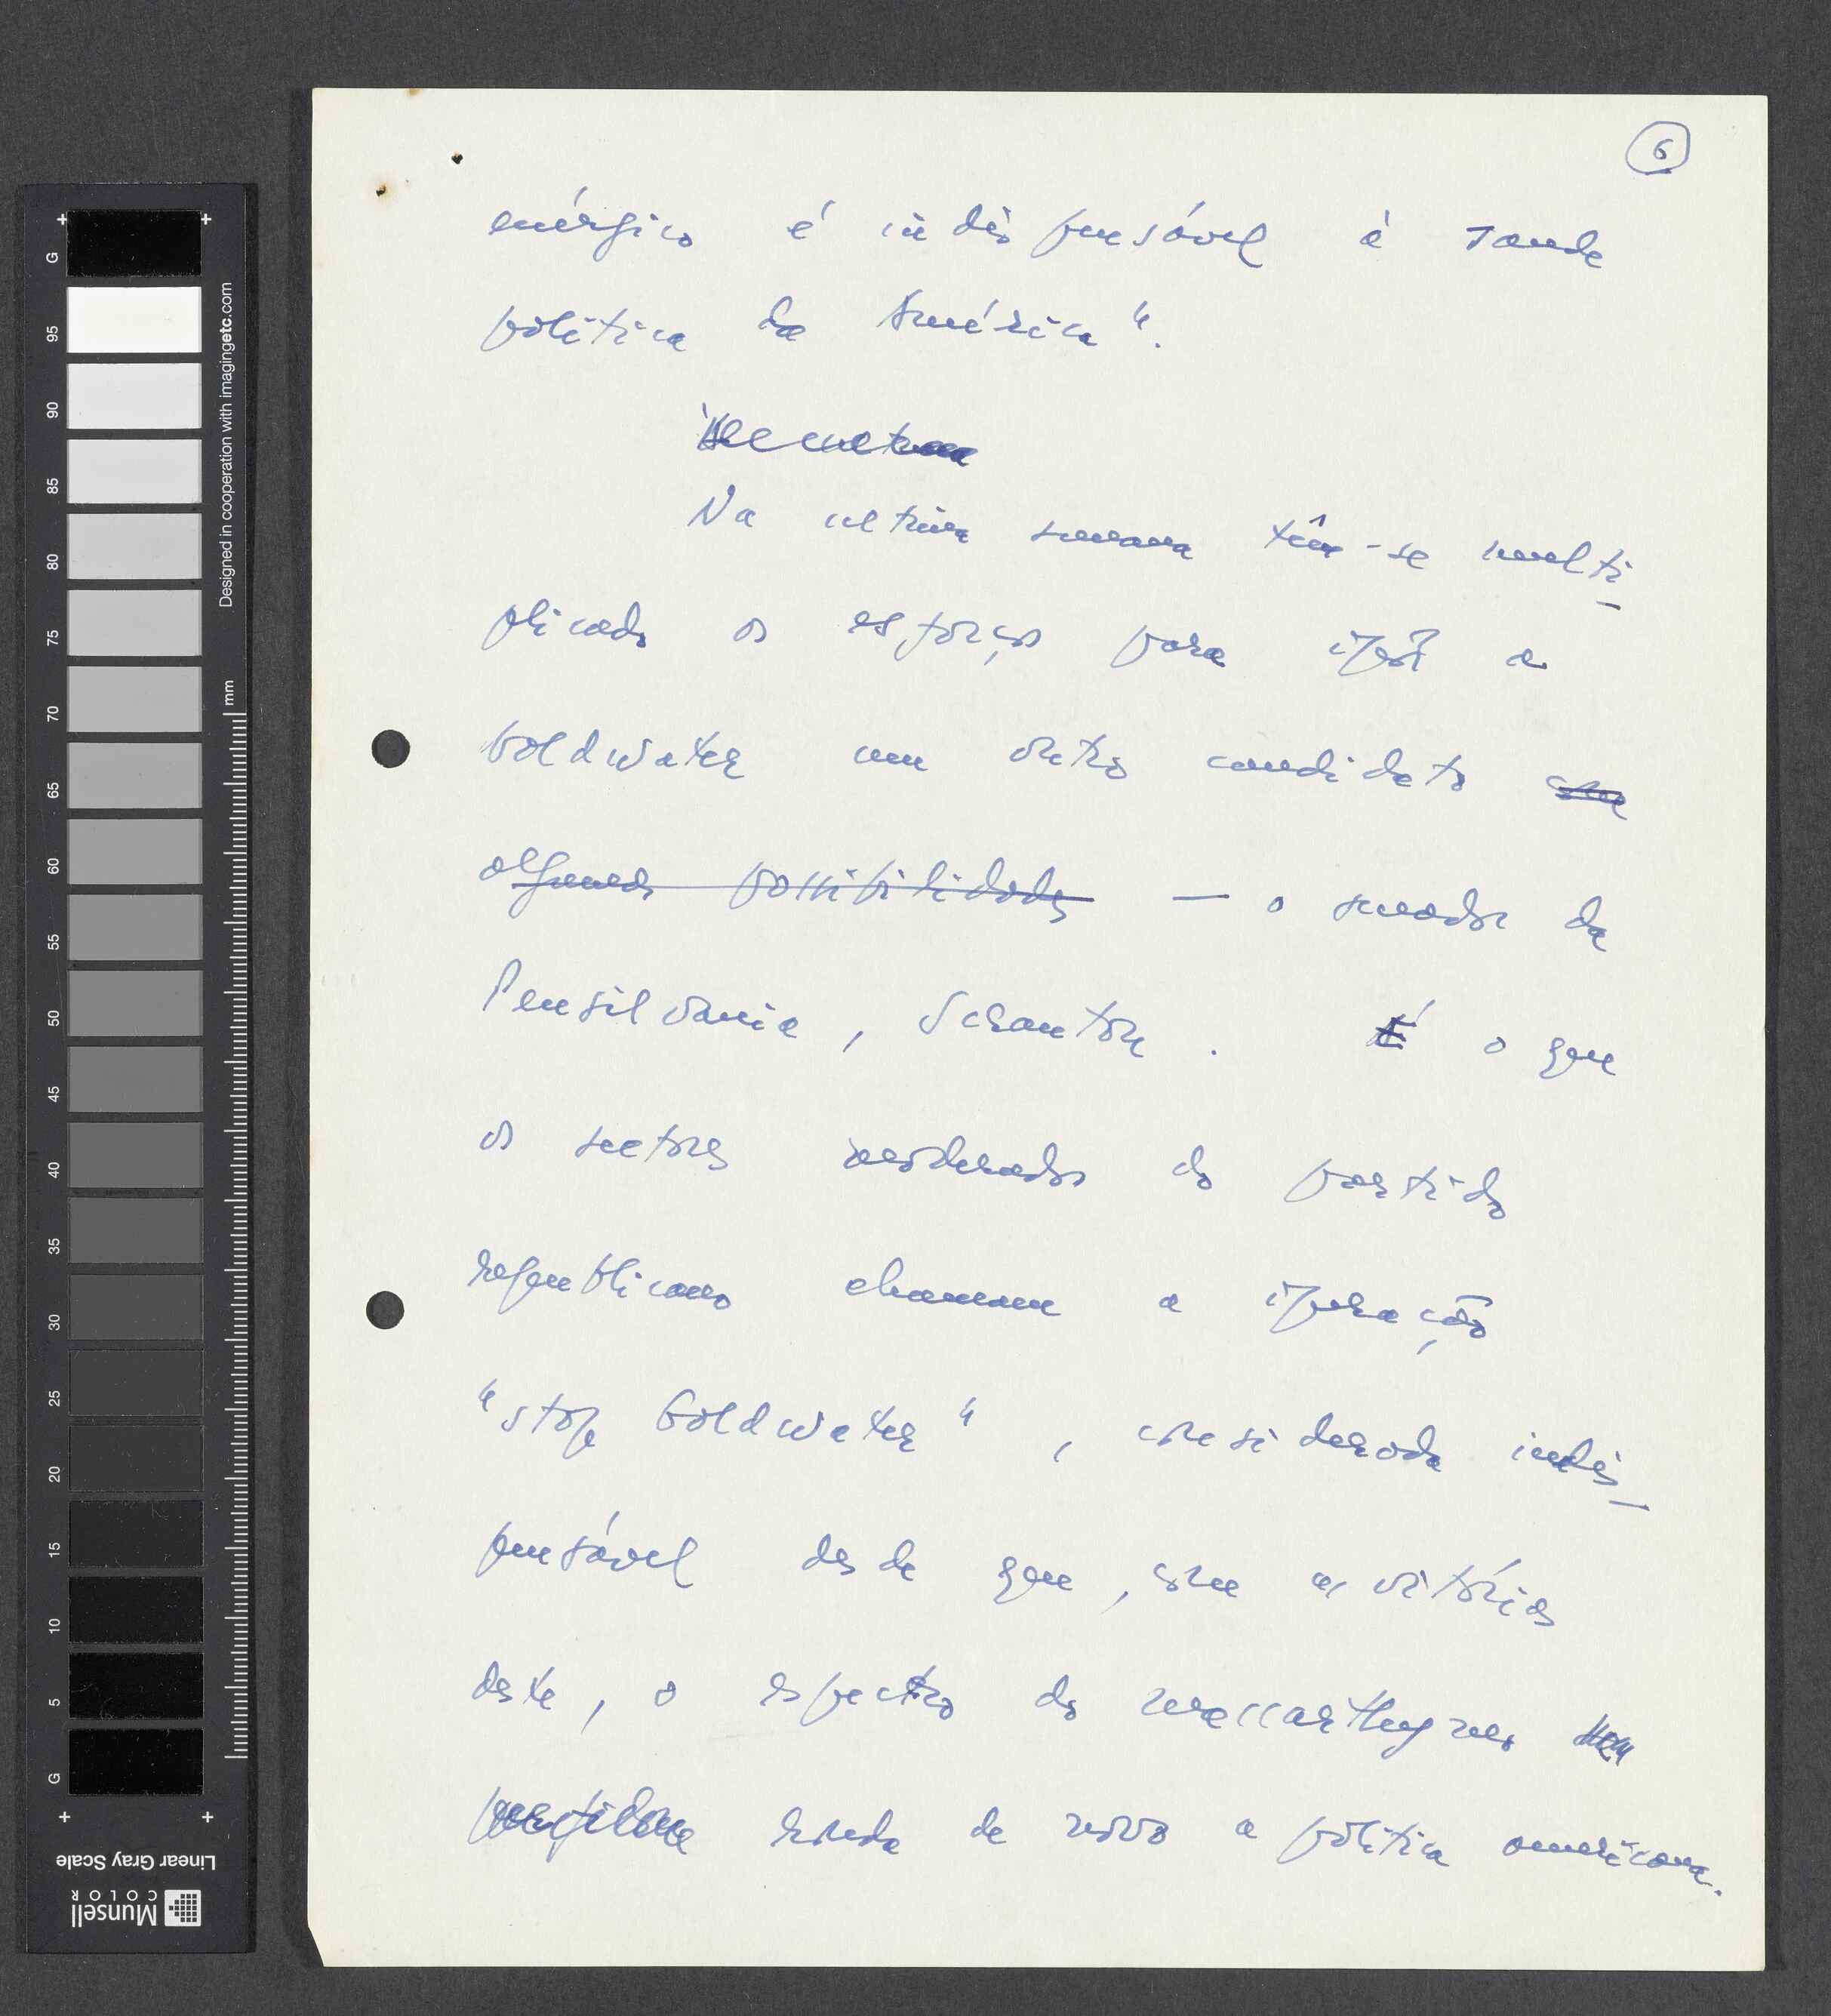 6
enérgico é indispensável à saude
política da América".
Na ultima semana têm-se multi
plicado os esforços para opôr a
Goldwater um outro candidato com
algumas possibilidades — o senador da
Pensilvania, Scranton. É o que
os sectores moderados do partido
republicano chamam a operação
"stop Goldwater", considerada indis
pensável desde que, com a vitória
deste, o espectro do maccarthysmo
ronda de novo a política americana.
G
95
90
85
80
75
70
65
60
55
50
45
40
35
30
25
20
15
10
5
G
mm
Designed in cooperation with imagingetc.com
Linear Gray Scale
Munsell
COLOR